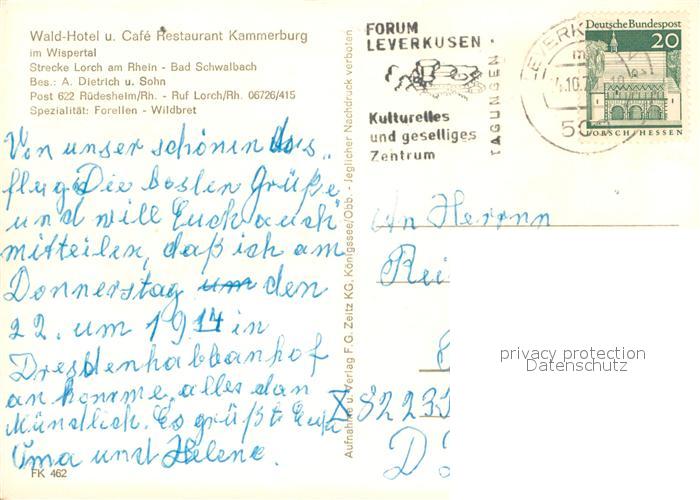 Wald-Hotel u. Café Restaurant Kammerburg
im Wispertal
Strecke Lorch am Rhein - Bad Schwalbach
Bes.: A. Dietrich u. Sohn
Post 622 Rüdesheim/Rh. - Ruf Lorch/Rh. 06726/415
Spezialität: Forellen - Wildbret
Von unser schönin Aus„
flug Die besten Grüße
und will Euch auch
mitteilen, daß ich am
Donnerstag um den
22. um 19 14 in
Dresdenhabbanhof
an komme, alles dan
Münstlich. Es grüßt Euch
Oma und Helene.
FK 462
Aufnahme u. Verlag F.G. Zeitz KG, Königssee/Obb. - Jeglicher Nachdruck verboten
FORUM
LEVERKUSEN
Kulturelles
und geselliges
Zentrum
TAGUNGEN
LEVERK
Deutsche Bundespost
20
LORSCH/HESSEN
An Herrn
Rei
X 8223
D
privacy protection
Datenschutz